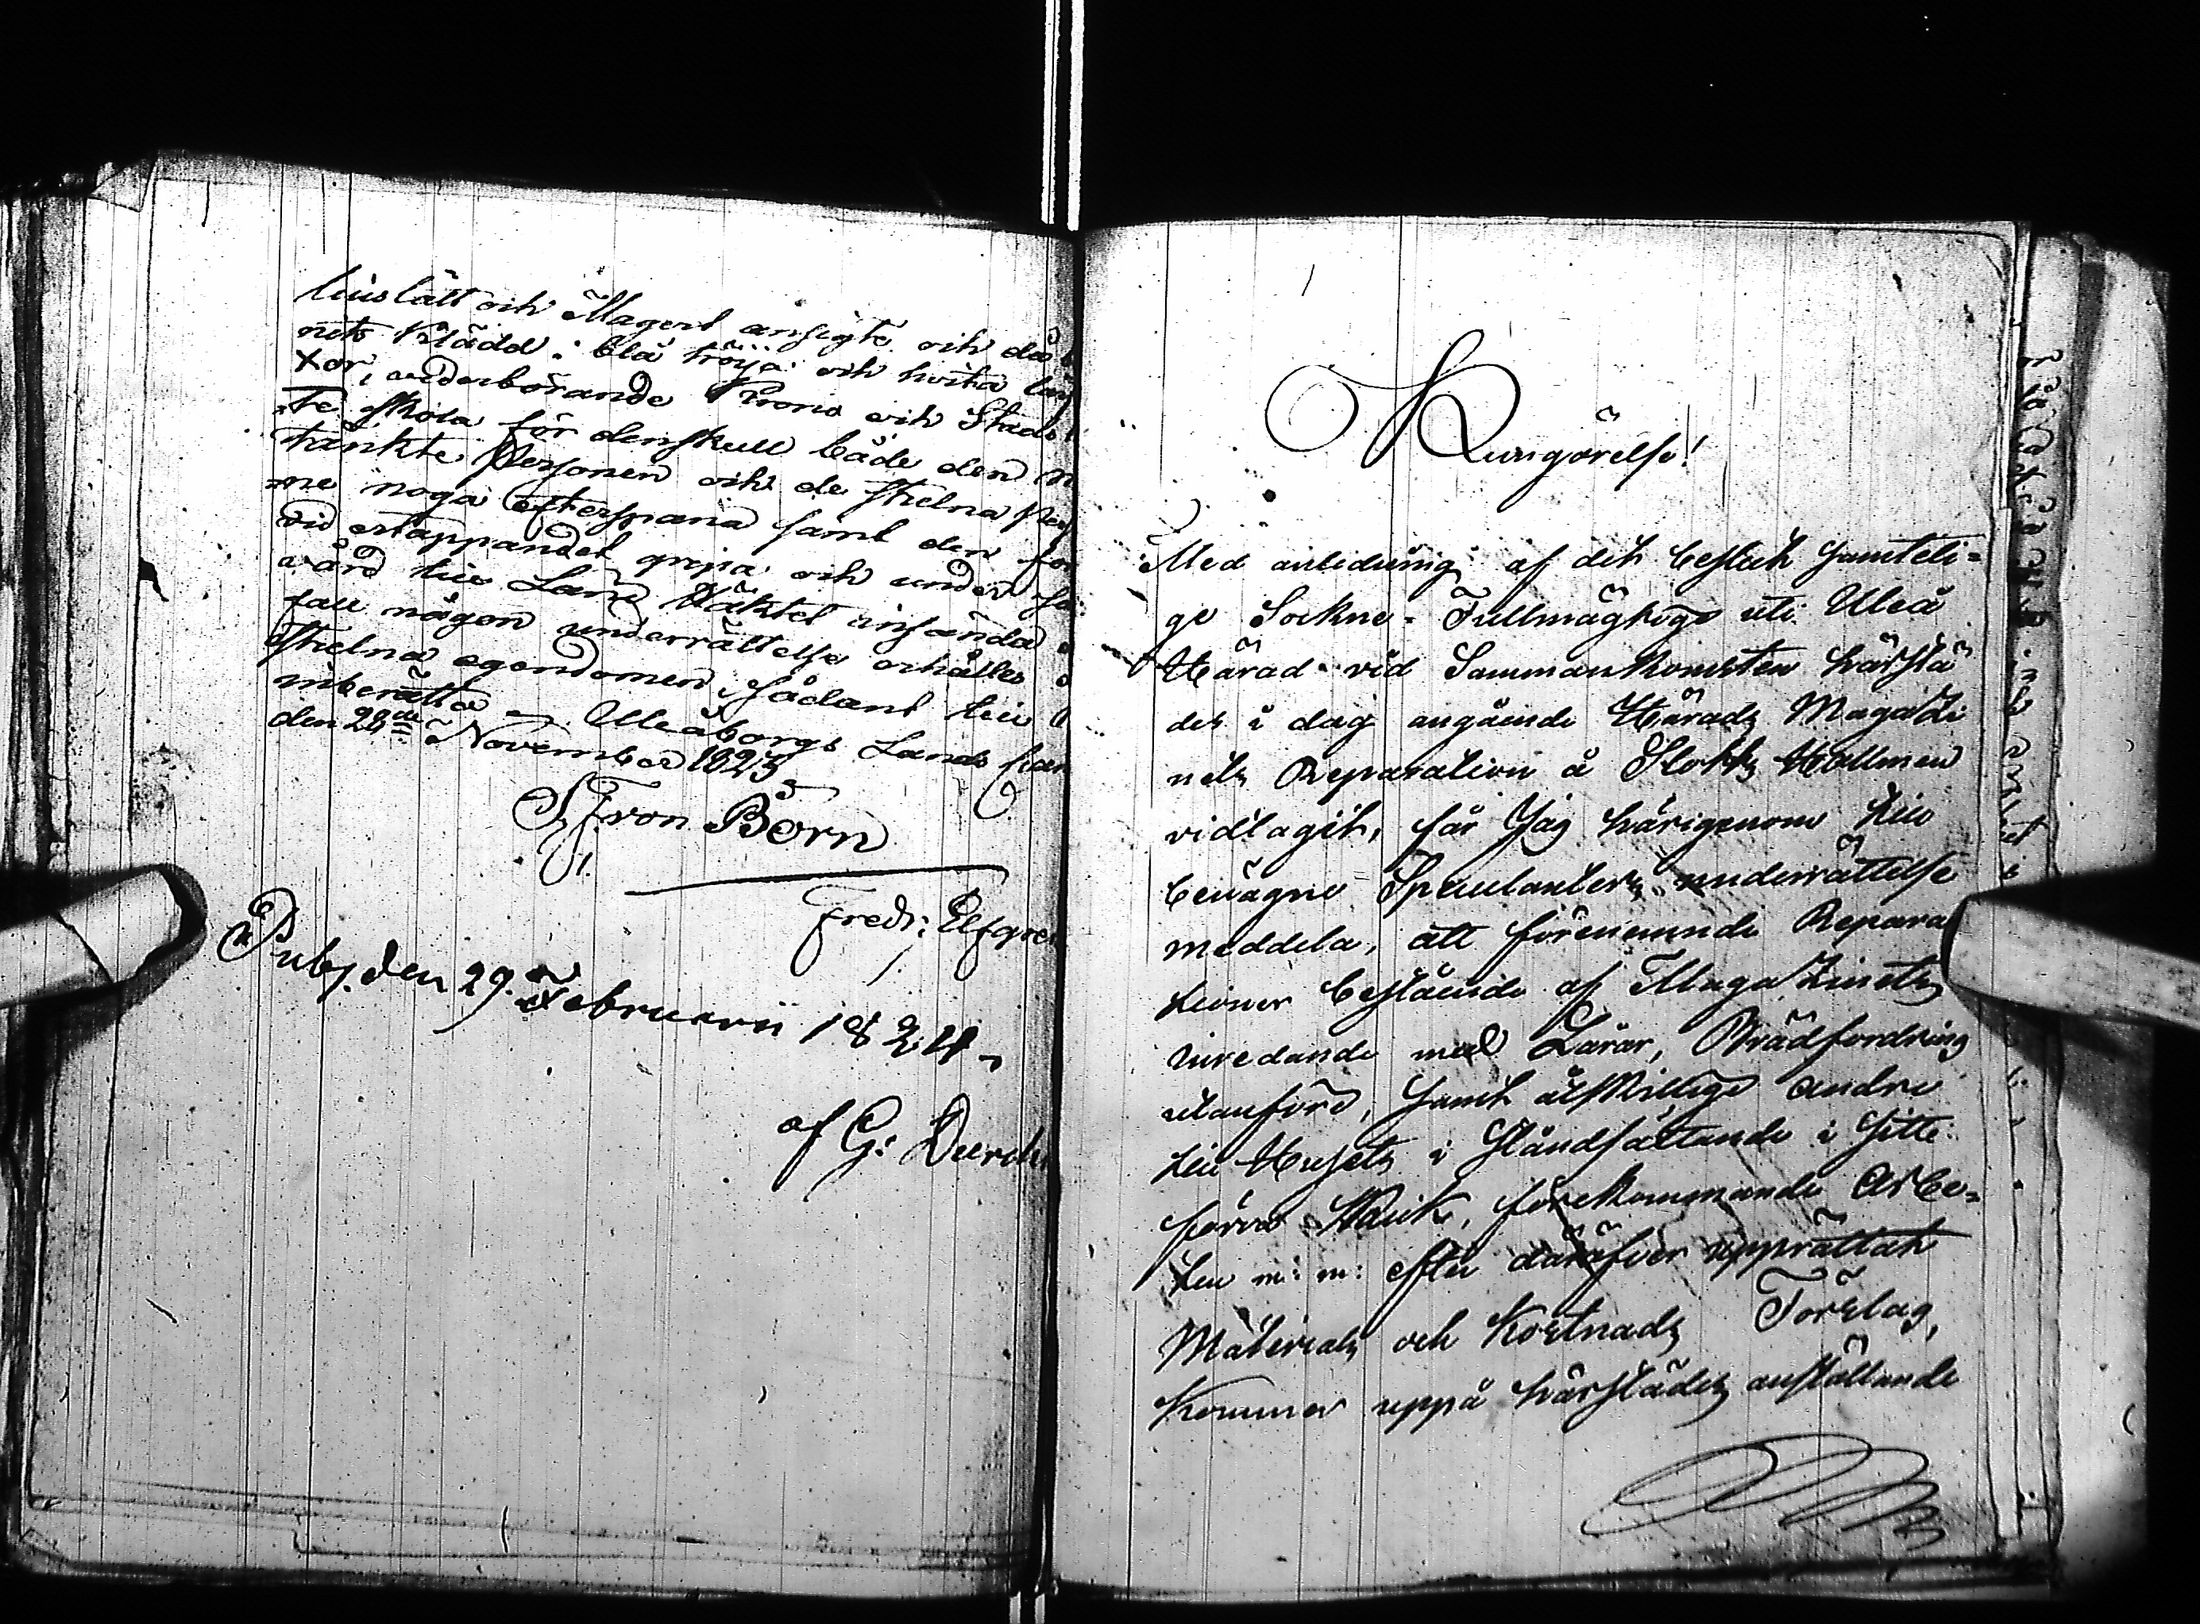 liuslätt och Magert ansigte och då
nets Klädd i blå tröija och hvita lång
xor, vederbörande Krono och Stads
te skola för denskull både den
tänkte Personen och de stulna
ne noga efterspana samt den
vid ertappandet gripa och under
vård till Lands Häktet insända
fall någon underrättelse erhålles
stulna egendomen, sådant till
inberätta Uleåborgs Lands
den 28de November 1823
S. F. von Born
Fredr: Elfgren
Publ. den 29. Februarii 1824
af G: Durch
Kungörelse!
Med anledning af det beslut samteli=
ge Sockne-Fullmägtige uti Uleå
Härad vid Sammankomsten härstä
des i dag angående Härads Magazi
nets Reparation å Slotts Hållmen
vidtagit, får Jag härigenom till
benägne Speculanters underrättelse
meddela, att förenemnde Repara
tioner bestående af Magazinets
inredande med Lårar, Brädfordring
utanföre, samt åtskillige andre
till Husets i ståndsättande i sitt
förra skick, förekommande Arbe=
ten m: m: efter däröfver upprättat
Materials och Kostnads Förslag,
kommer uppå härstädes anställande